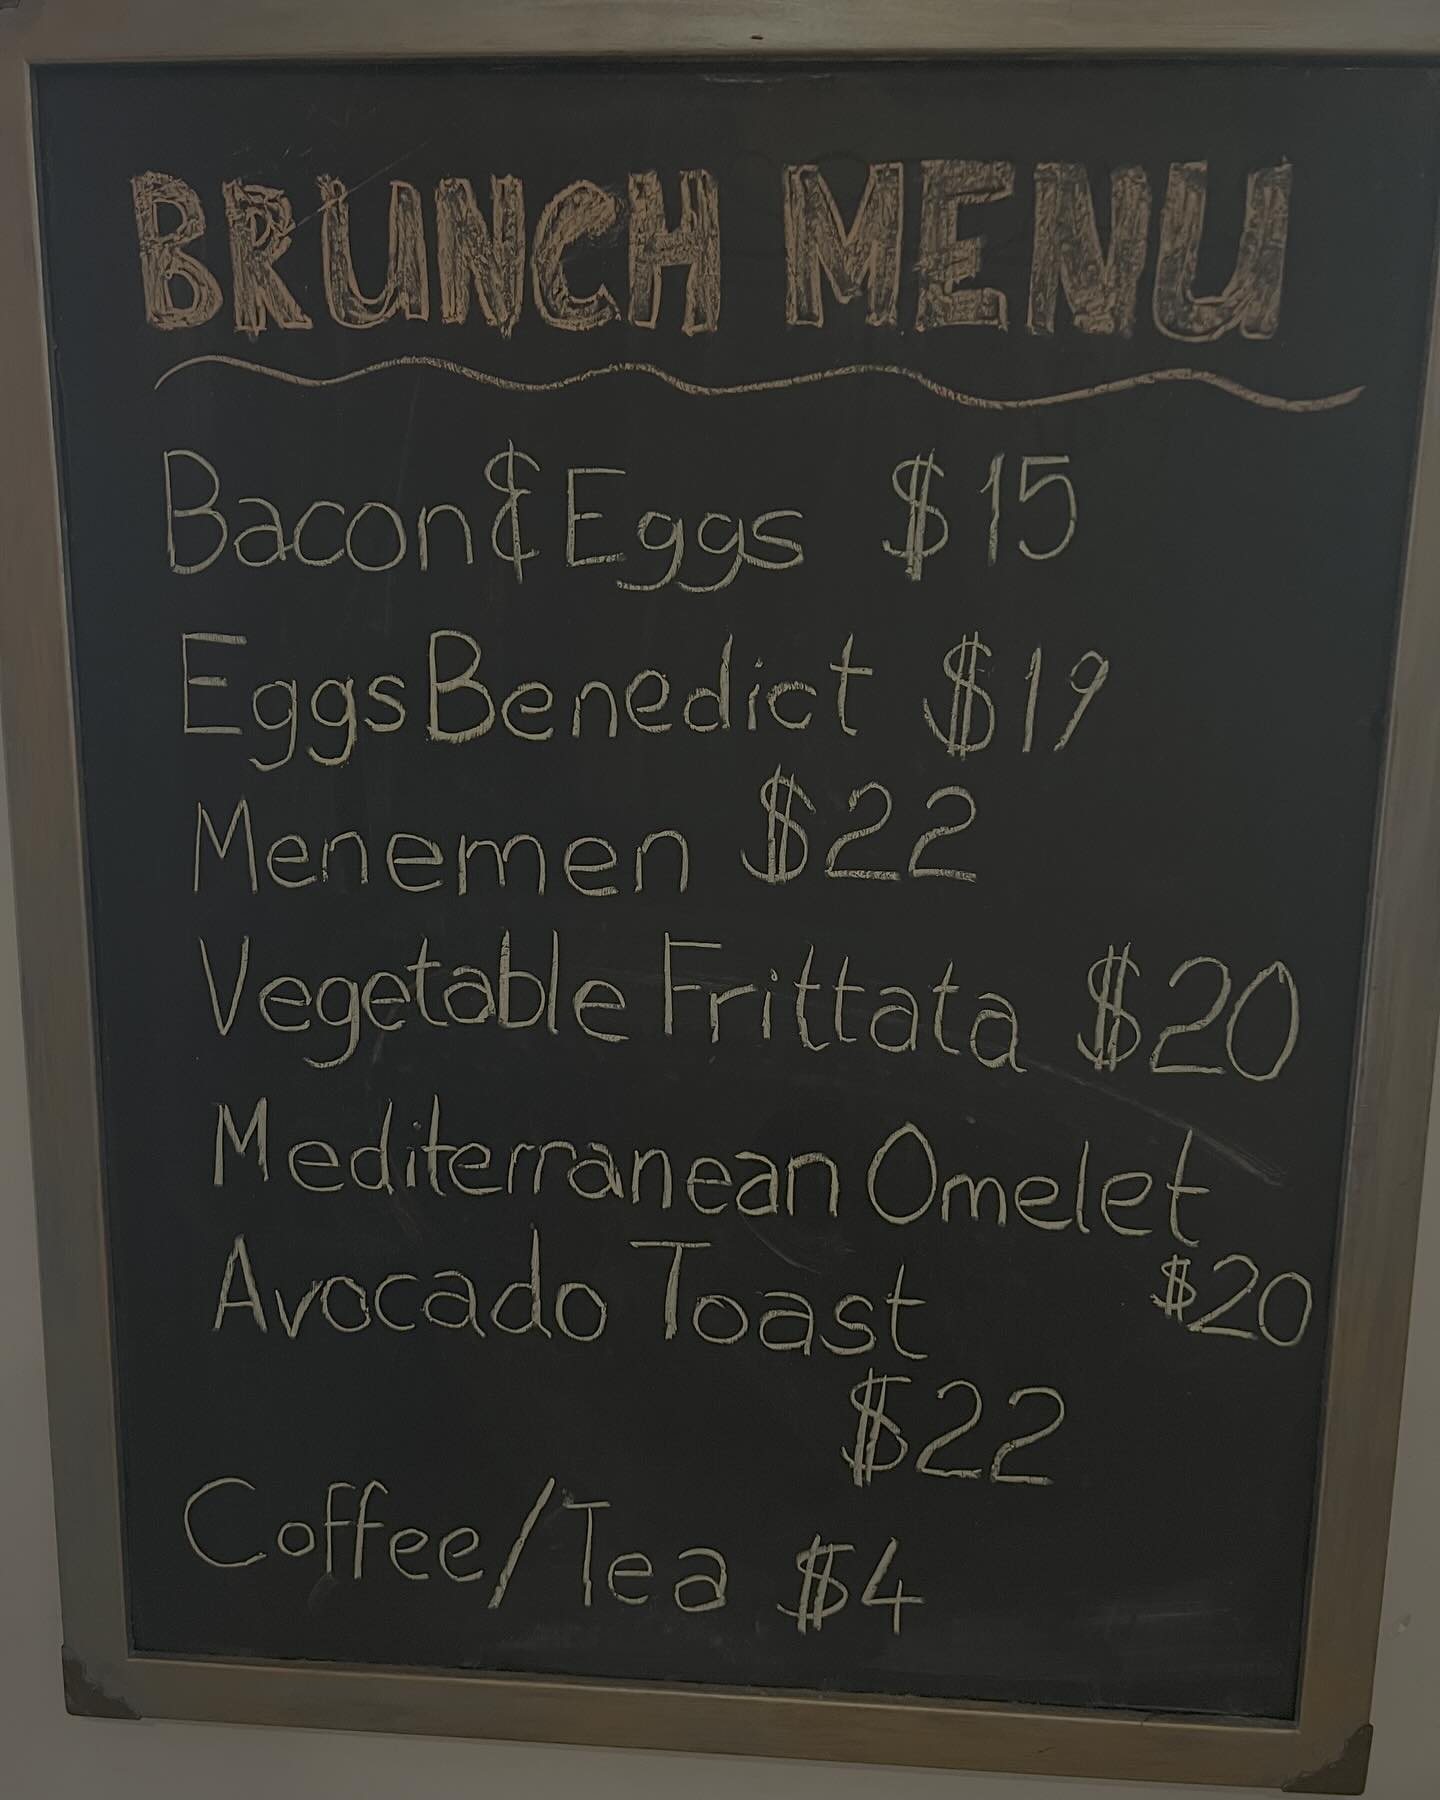 BRUNCH MENU
Bacon & Eggs $15
Eggs Benedict $19
Menemen $22
Vegetable Frittata $20
Mediterranean Omelet
$20
Avocado Toast
$22
Coffee/Tea $4